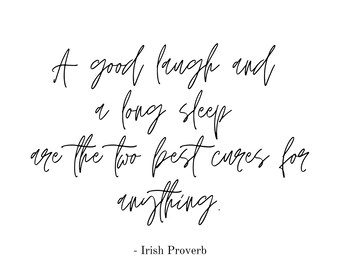 A good laugh and
a long sleep
are the two best cures for
anything.
- Irish Proverb